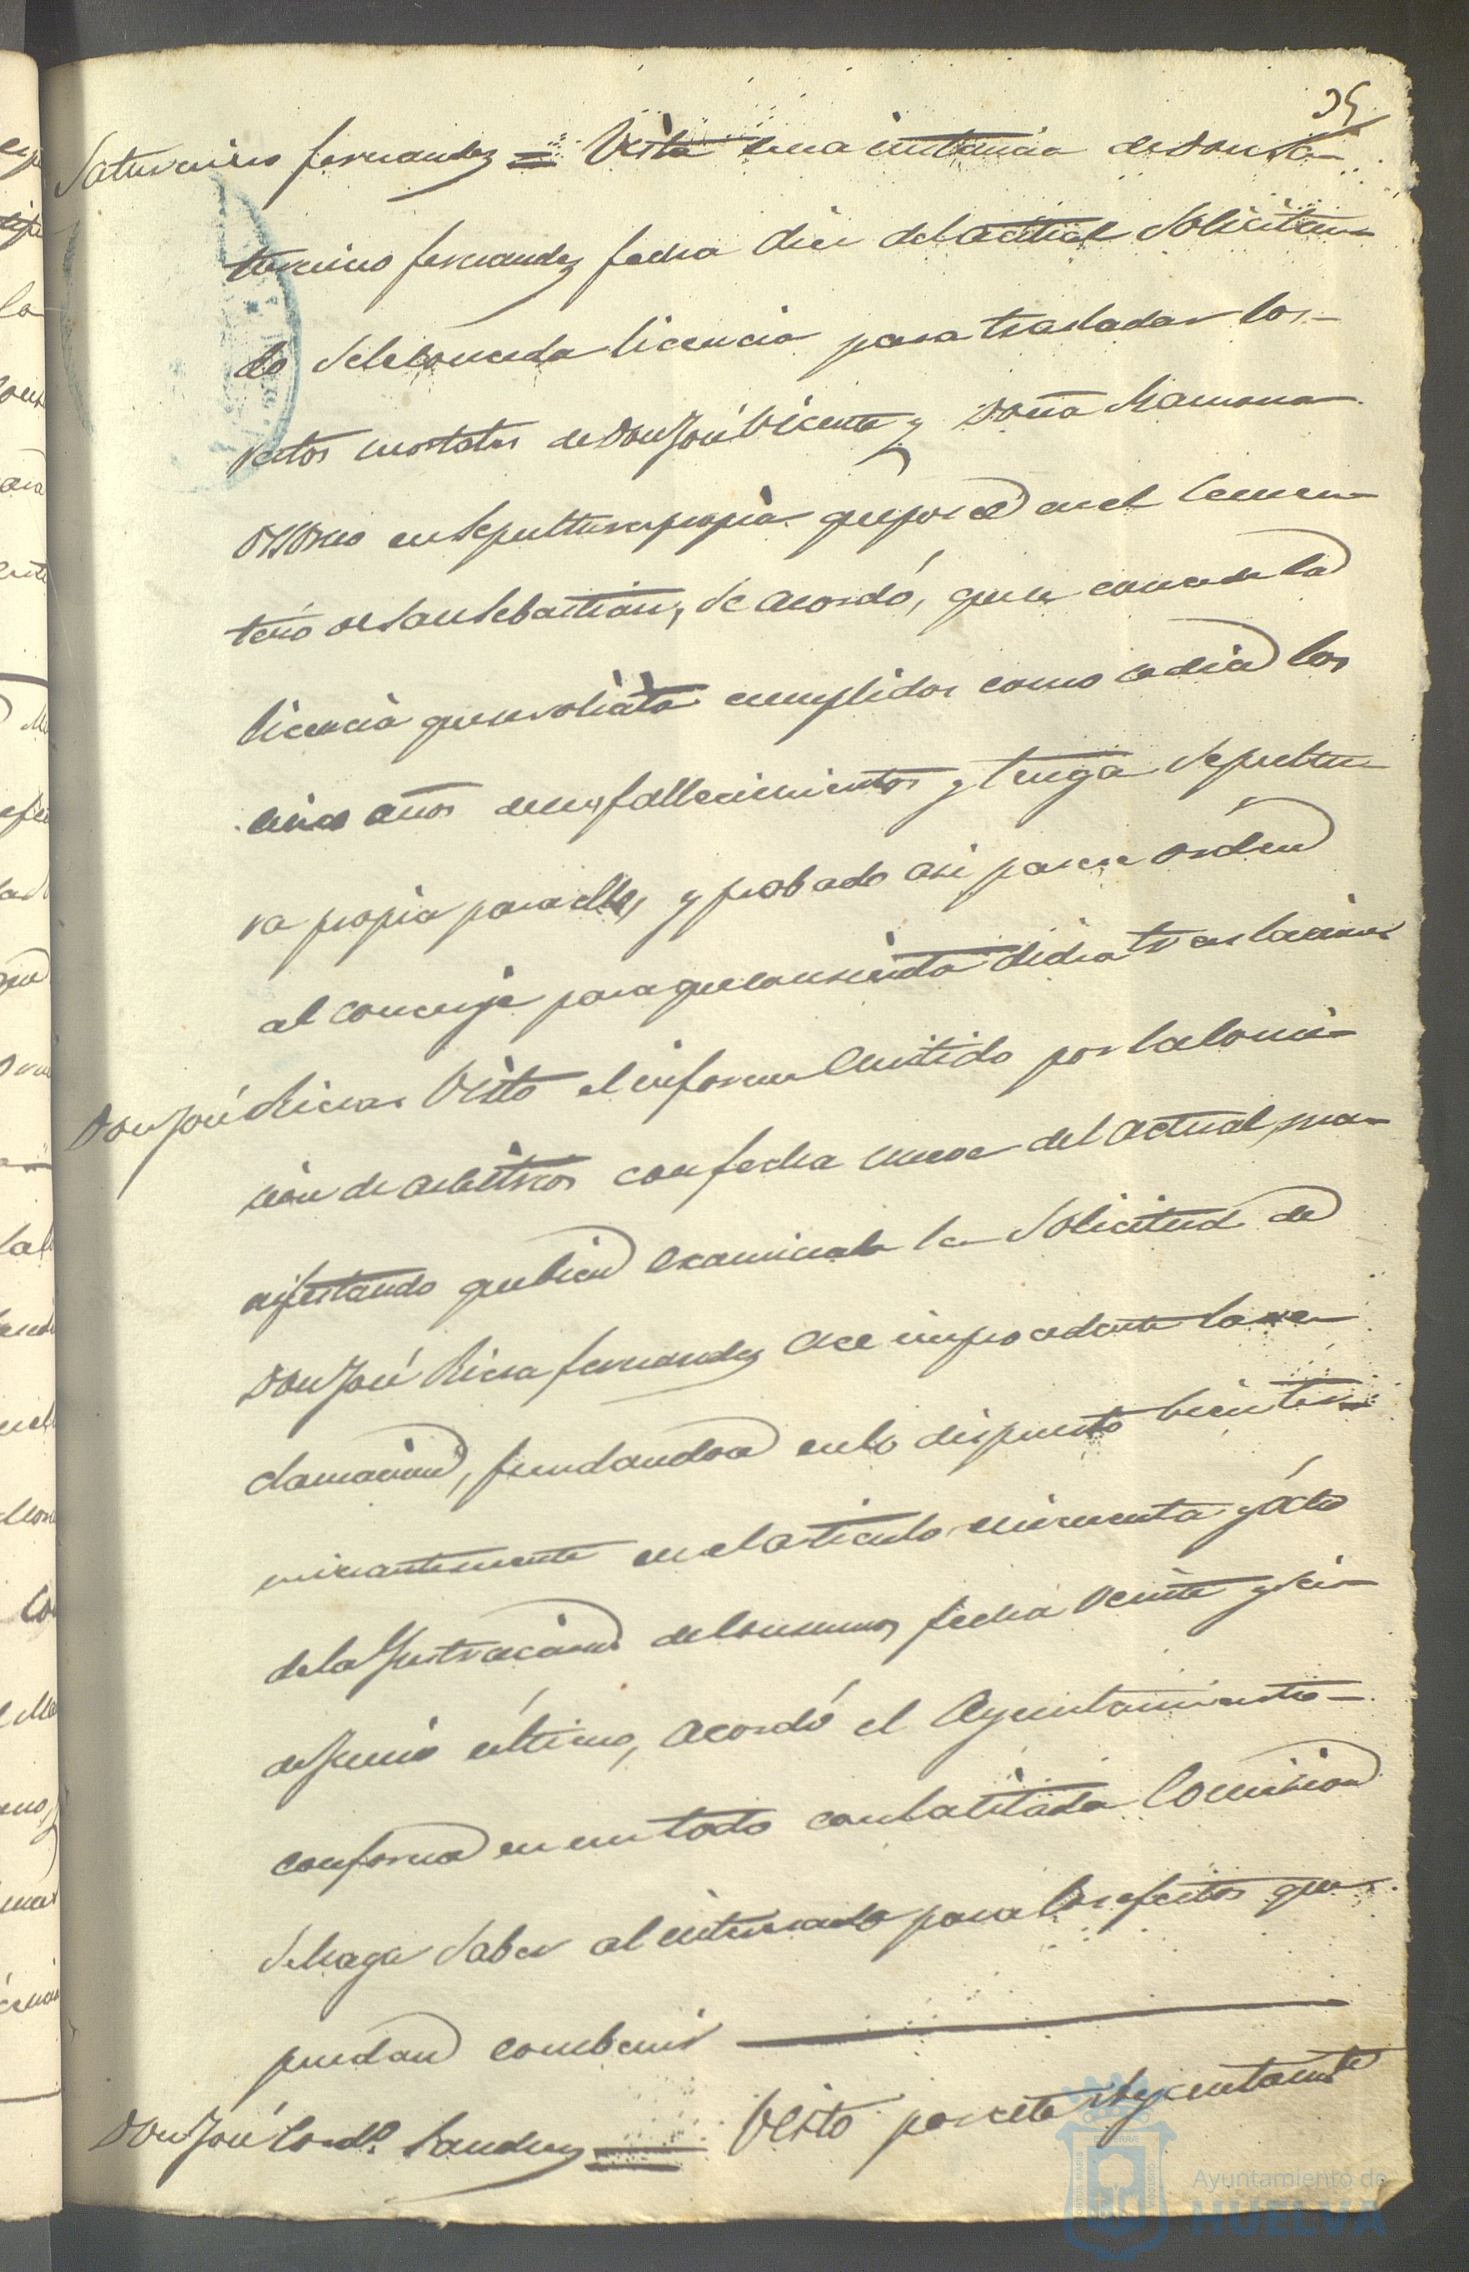 35
Saturnino Fernandez = Vista una instancia de Don Sa-
turnino Fernandez fecha diez del actual solicitan-
do se le conceda licencia para trasladar los
restos mortales de Don José Vicente y Doña Ramona
Ossorno en sepultura propia que posee en el Cemen-
terio de San Sebastian, se acordó, que se conceda la
licencia que se solicita cumplidos como sedicia los
cinco años de sus fallecimientos y tenga sepultu-
ra propia para ello, y probado asi pase se orden
al conserje para que consienta dicha traslacion
Don José Riera = Visto el informe emitido por la Comi-
sion de arbitrios con fecha nueve del actual, ma-
nifestando que bien examinada la solicitud de
Don José Riera Fernandez cree improcedente la re-
clamacion, fundandose en lo dispuesto bien ter-
minantemente en el articulo cincuenta y ócho
de la Ynstruccion de Consumos, fecha veinte y seis
de Junio último, acordó el Ayuntamiento
conforme en un todo con la citada Comision
se haga saber al interesado para los efectos que
puedan combenir
Don José Sanchez = Visto por este Ayuntamto
Ayuntamiento de
HUELVA